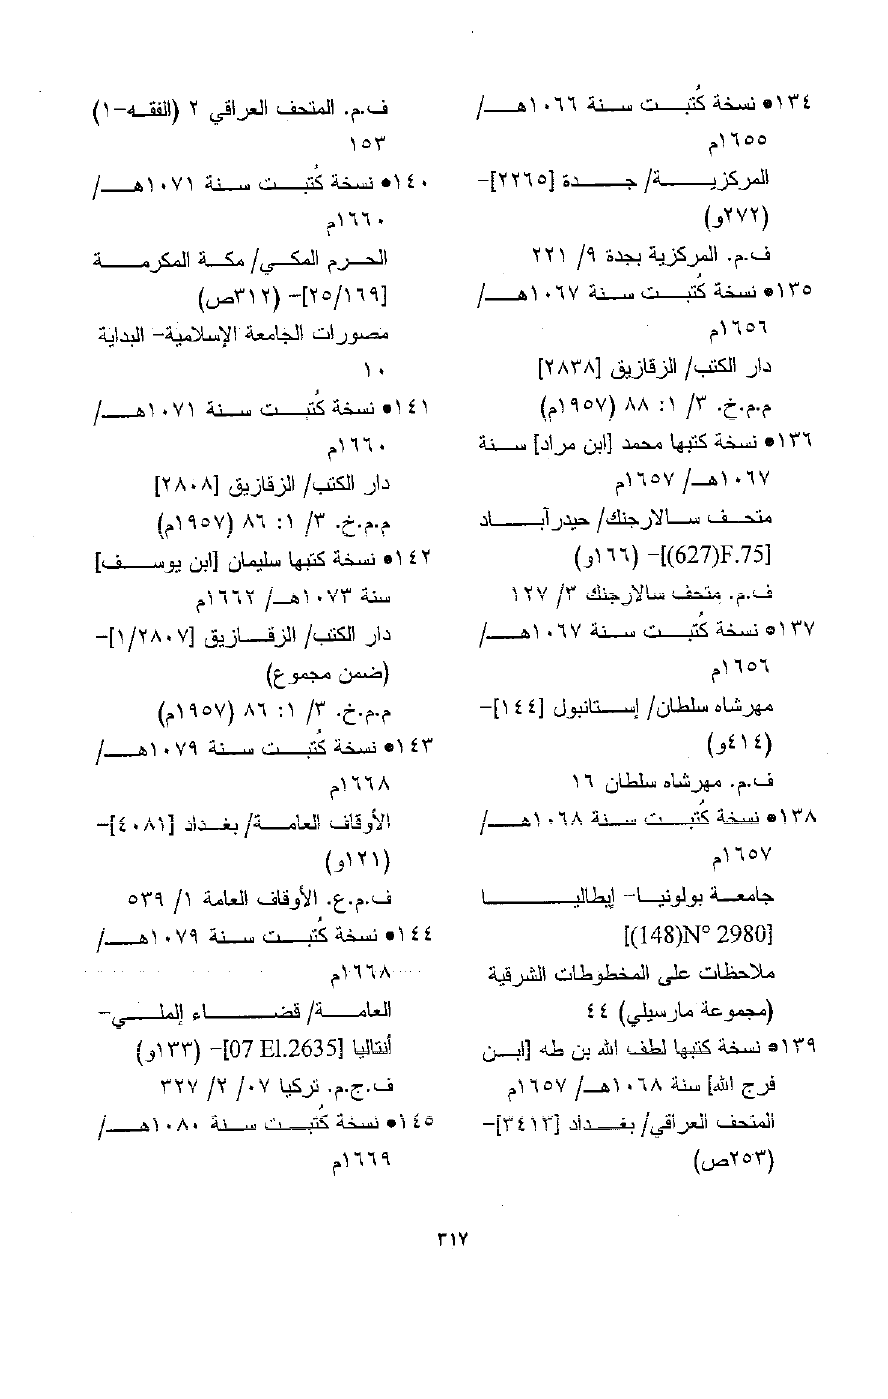 ١٣٤• نسخة كُتبت سنة ١٠٦٦هـ/
١٦٥٥م
المركزية/ جدة [٢٢٦٥]-
(٢٧٢و)
ف.م. المركزية بجدة ٩/ ٢٢١
١٣٥• نسخة كُتبت سنة ١٠٦٧هـ/
١٦٥٦م
دار الكتب/ الزقازيق [٢٨٣٨]
م.م.خ. ٣/ ١: ٨٨ (١٩٥٧م)
١٣٦• نسخة كتبها محمد [ابن مراد] سنة
١٠٦٧هـ/ ١٦٥٧م
متحف سالارجنك/ حيدرآباد
[(627)F.75]- (١٦٦و)
ف.م. متحف سالارجنك ٣/ ١٢٧
١٣٧• نسخة كُتبت سنة ١٠٦٧هـ/
١٦٥٦م
مهرشاه سلطان/ إستانبول [١٤٤]-
(٤١٤و)
ف.م. مهرشاه سلطان ١٦
١٣٨• نسخة كُتبت سنة ١٠٦٨هـ/
١٦٥٧م
جامعة بولونيا- إيطاليا
[(148)N° 2980]
ملاحظات على المخطوطات الشرقية
(مجموعة مارسيلي) ٤٤
١٣٩• نسخة كتبها لطف الله بن طه [ابن
فرج الله] سنة ١٠٦٨هـ/ ١٦٥٧م
المتحف العراقي/ بغداد [٣٤١٣]-
(٢٥٣ص)
ف.م. المتحف العراقي ٢ (الفقه-١)
١٥٣
١٤٠• نسخة كُتبت سنة ١٠٧١هـ/
١٦٦٠م
الحرم المكي/ مكة المكرمة
[٢٥/١٦٩]- (٣١٢ص)
مصورات الجامعة الإسلامية- البداية
١٠
١٤١• نسخة كُتبت سنة ١٠٧١هـ/
١٦٦٠م
دار الكتب/ الزقازيق [٢٨٠٨]
م.م.خ. ٣/ ١: ٨٦ (١٩٥٧م)
١٤٢• نسخة كتبها سليمان [ابن يوسف]
سنة ١٠٧٣هـ/ ١٦٦٢م
دار الكتب/ الزقازيق [١/٢٨٠٧]-
(ضمن مجموع)
م.م.خ. ٣/ ١: ٨٦ (١٩٥٧م)
١٤٣• نسخة كُتبت سنة ١٠٧٩هـ/
١٦٦٨م
الأوقاف العامة/ بغداد [٤٠٨١]-
(١٢١و)
ف.م.ع. الأوقاف العامة ١/ ٥٣٩
١٤٤• نسخة كُتبت سنة ١٠٧٩هـ/
١٦٦٨م
العامة/ قضاء إلملي-
أنتاليا [07 El.2635]- (١٣٣و)
ف.ج.م. تركيا ٠٧/ ٢/ ٣٢٧
١٤٥• نسخة كُتبت سنة ١٠٨٠هـ/
١٦٦٩م
٣١٧